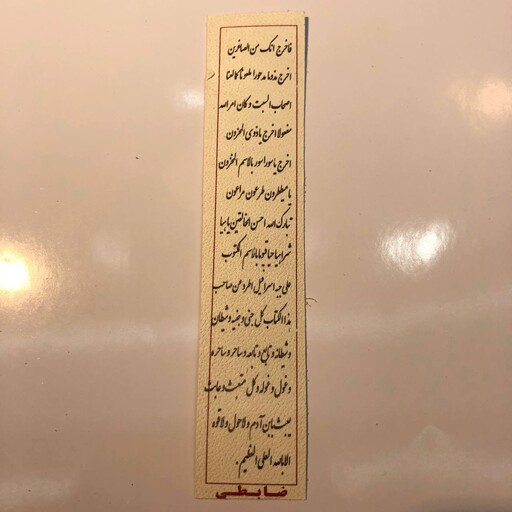 فاخرج انک من الصاغرین
اخرج مذوما مدحورا ملعونا کما لعنا
اصحاب السبت و کان امر الله
مفعولا اخرج یا ذوی المخزون
اخرج یا سورا سور بالاسم المخزون
یا میططرون طرعون مراعون
تبارک الله احسن الخالقین یا هیا
شراهیا حیا قیوما بالاسم المکتوب
علی جبهة اسرافیل اطرد عن صاحب
هذا الکتاب کل جنی و جنیه و شیطان
و شیطانه و تابع و تابعه و ساحر و ساحره
و غول و غوله و کل متعبث و عابث
یعبث بابن آدم و لا حول و لا قوه
الا بالله العلی العظیم.
ضابطی